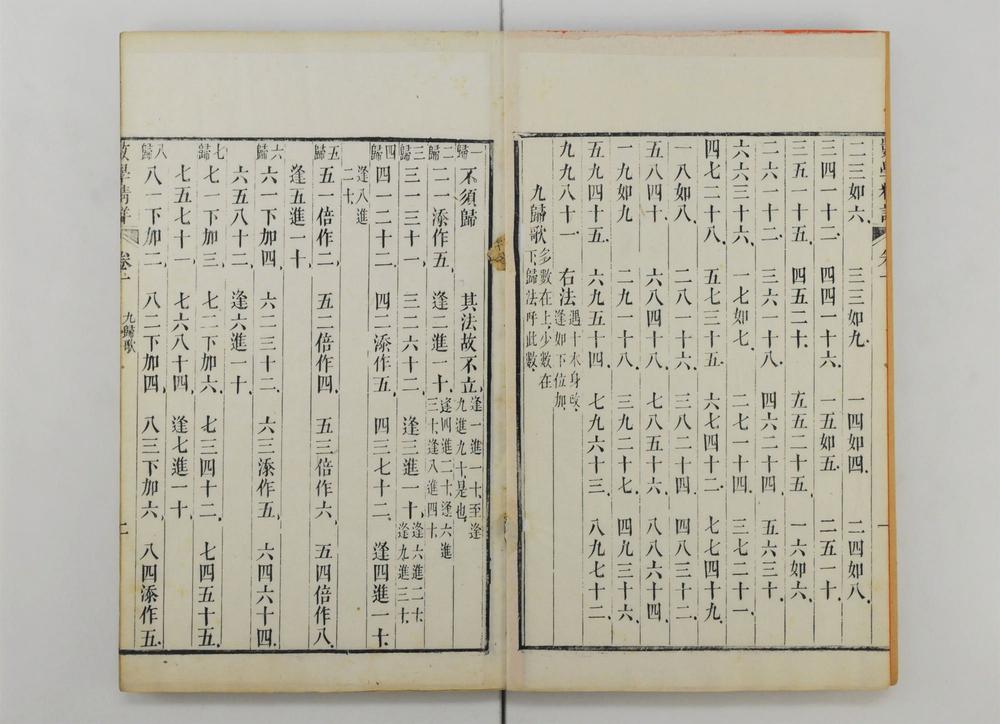 二三如六 三三如九 一四如四 二四如八
三四一十二 四四一十六 一五如五 二五一十
三五一十五 四五二十 五五二十五 一六如六
二六一十二 三六一十八 四六二十四 五六三十
六六三十六 一七如七 二七一十四 三七二十一
四七二十八 五七三十五 六七四十二 七七四十九
一八如八 二八一十六 三八二十四 四八三十二
五八四十 六八四十八 七八五十六 八八六十四
一九如九 二九一十八 三九二十七 四九三十六
五九四十五 六九五十四 七九六十三 八九七十二
九九八十一 右法遇十本身改
逢如下位加
九歸歌多數在上少數在
下歸法呼此數
一歸不須歸 其法故不立逢一進一十至逢
九進九十是也
二歸二一添作五 逢二進一十逢四進二十逢六進
三十逢八進四十
三歸三一三十一 三二六十二 逢三進一十逢六進二十
逢九進三十
四歸四一二十二 四二添作五 四三七十二 逢四進一十
逢八進
二十
五歸五一倍作二 五二倍作四 五三倍作六 五四倍作八
逢五進一十
六歸六一下加四 六二三十二 六三添作五 六四六十四
六五八十二 逢六進一十
七歸七一下加三 七二下加六 七三四十二 七四五十五
七五七十一 七六八十四 逢七進一十
八歸八一下加二 八二下加四 八三下加六 八四添作五
數學精詳 卷二 九歸歌 二